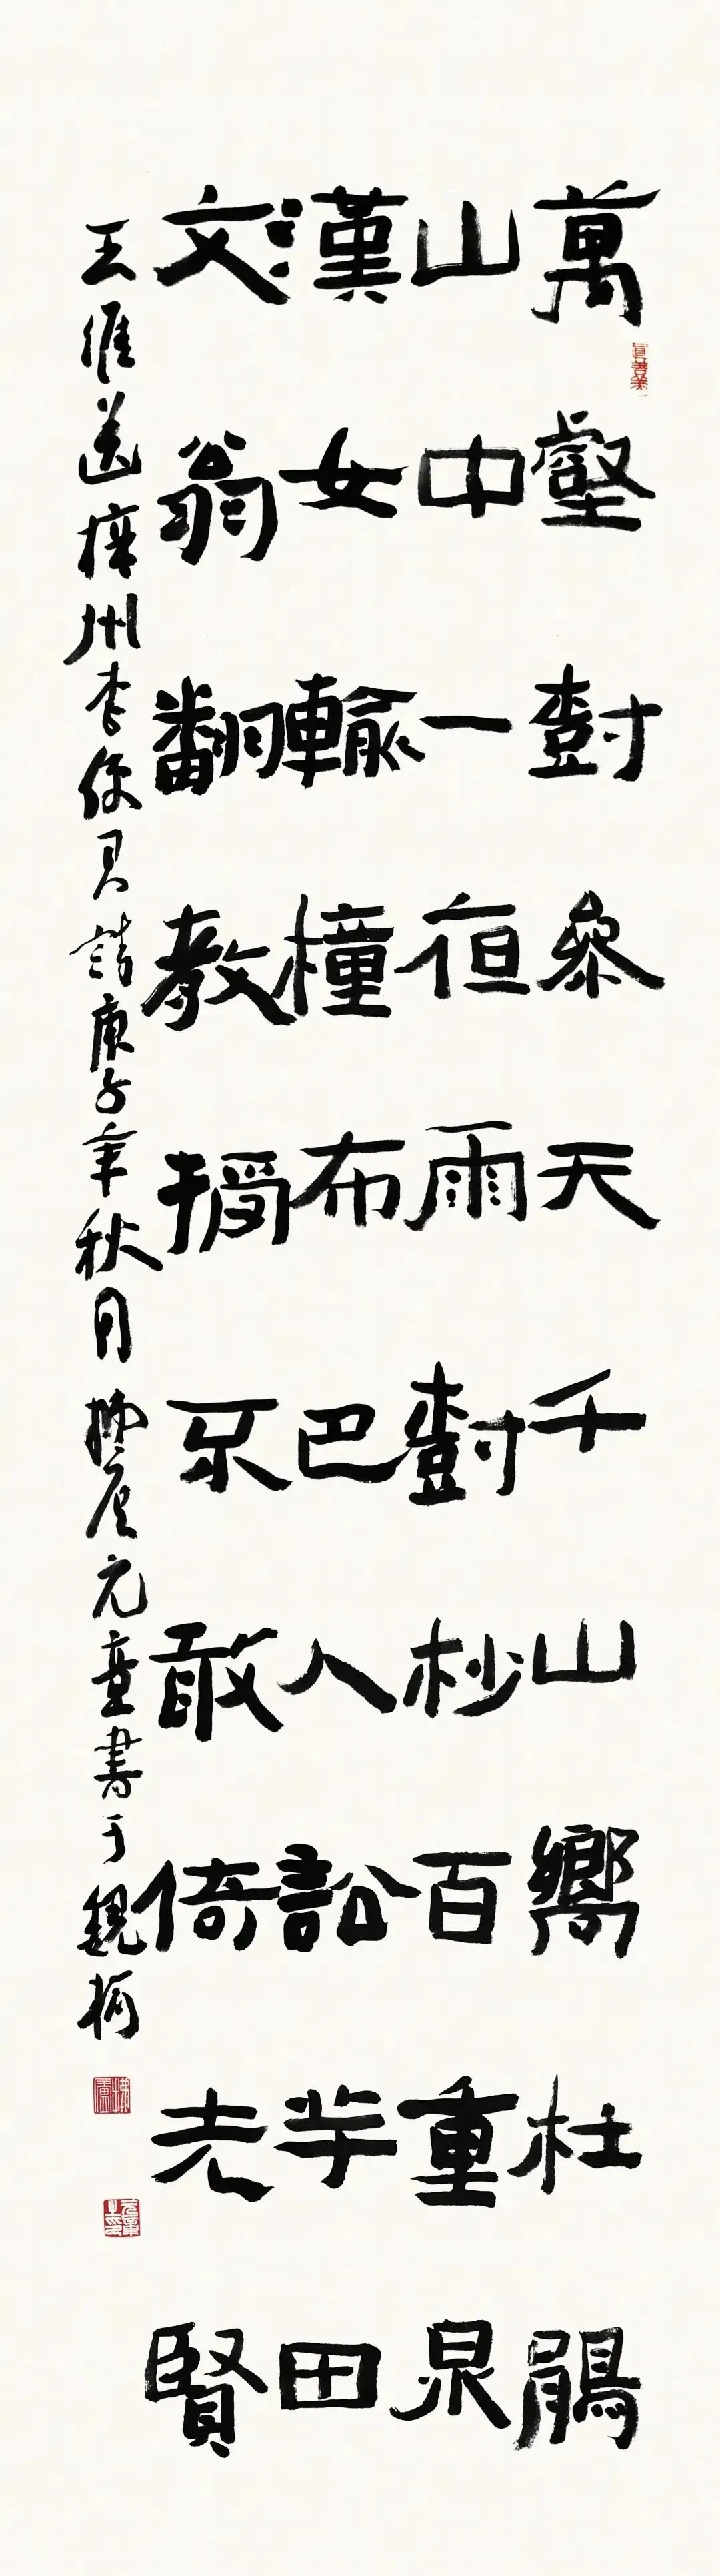 萬壑樹參天千山響杜鵑
山中一夜雨樹杪百重泉
漢女輸橦布巴人訟芋田
文翁翻教授不敢倚先賢
王維送梓州李使君詩庚子年秋月 元童書于魏
真善美